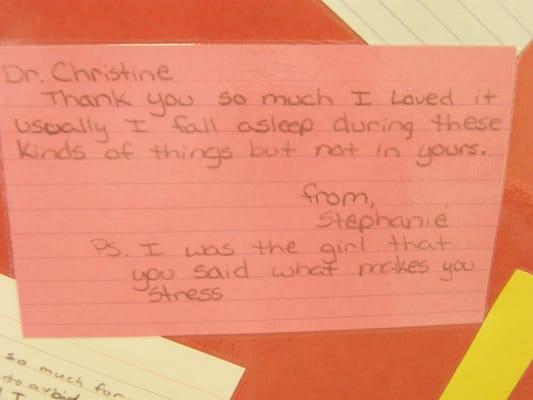 Dr. Christine
Thank you so much I Loved it
usually I fall asleep during these
kinds of things but not in yours.
from,
Stephanie
Ps. I was the girl that
you said what makes you
stress
so much for